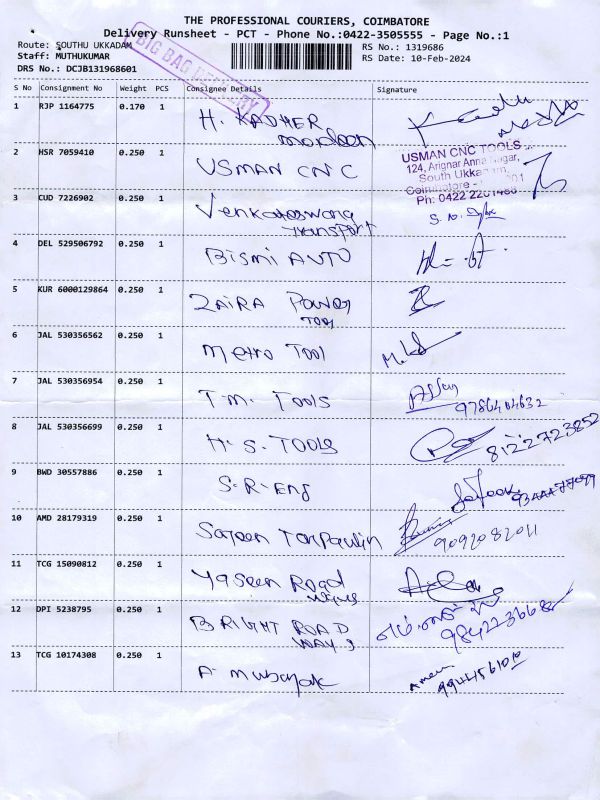 THE PROFESSIONAL COURIERS, COIMBATORE
Delivery Runsheet - PCT - Phone No.:0422-3505555 - Page No.:1
Route: SOUTHU UKKADAM
RS No.: 1319686
Staff: MUTHUKUMAR
RS Date: 10-Feb-2024
DRS No.: DCJB131968601
BIG BAG DELIVERY
S No Consignment No Weight PCS Consignee Details Signature
1 RJP 1164775 0.170 1 H. KADHER
moideen
2 HSR 7059410 0.250 1 USMAN CNC
USMAN CNC TOOLS
124, Arignar Anna Nagar,
South Ukkadam,
Coimbatore -
Ph: 0422 2201480
3 CUD 7226902 0.250 1 Venkateswara
Transport
4 DEL 529506792 0.250 1 Bismi AUTO
5 KUR 6000129864 0.250 1 ZAIRA Power
Tool
6 JAL 530356562 0.250 1 metro Tool
7 JAL 530356954 0.250 1 T.M. TOOLS
9786404632
8 JAL 530356699 0.250 1 H.S. TOOLS 8122723852
9 BWD 30557886 0.250 1 S.R-ENG
10 AMD 28179319 0.250 1 Tarpaulin 9092082011
11 TCG 15090812 0.250 1 Yaseen Road
12 DPI 5238795 0.250 1 BRIGHT ROAD
WAYS
13 TCG 10174308 0.250 1 A. mubarak